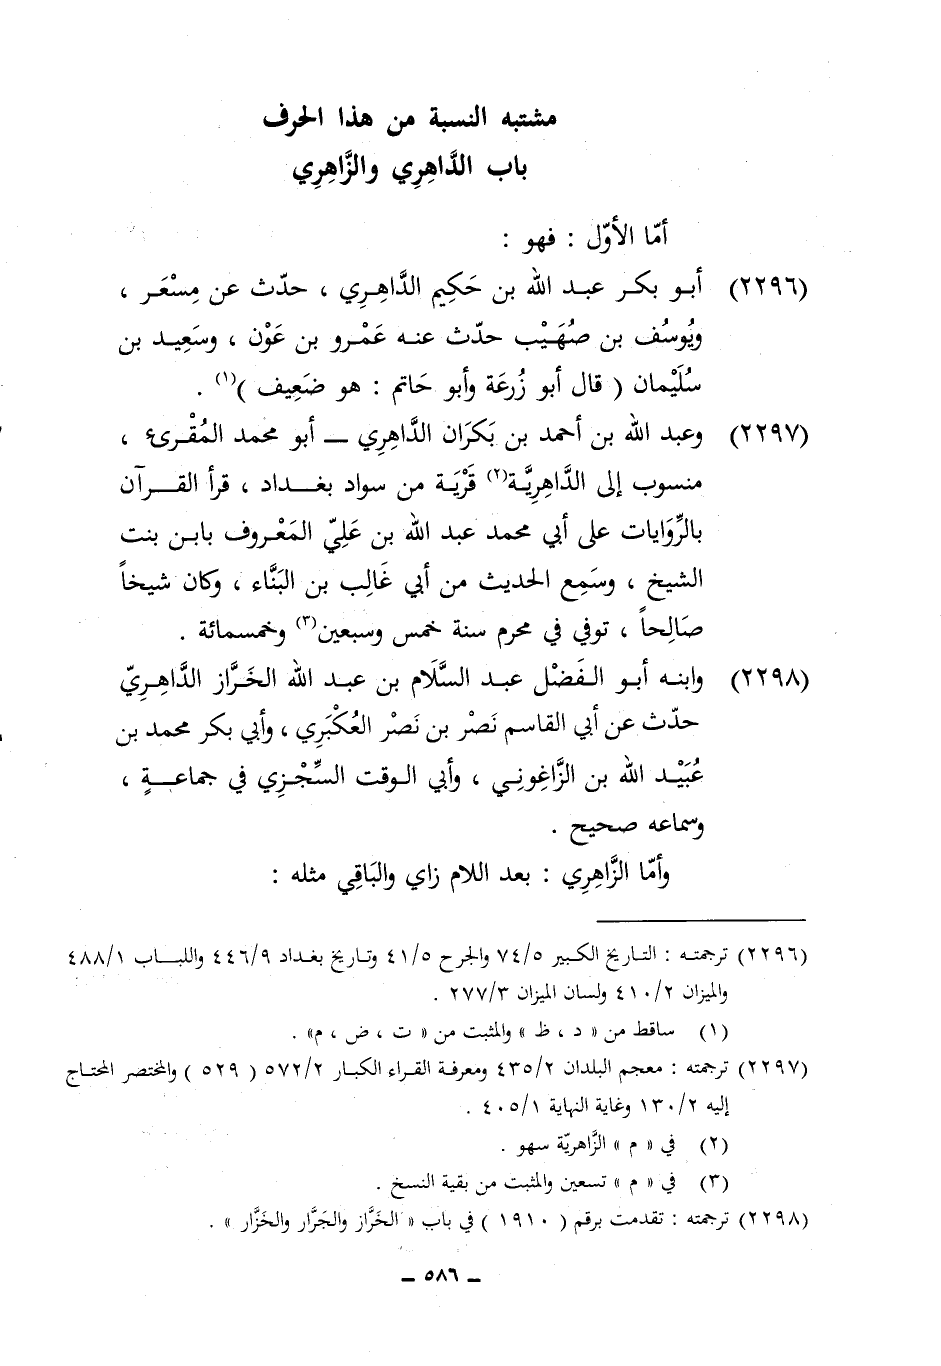 مشتبه النسبة من هذا الحرف
باب الدَّاهِرِي والزَّاهِرِي
أمّا الأوّل : فهو :
(٢٢٩٦) أبـو بكـر عبـد الله بن حَكِيم الدَّاهِـرِي ، حدّث عن مِسْعَـر ،
ويُوسُف بن صُهَيْب حدّث عنـه عَمْـرو بن عَوْن ، وسَعِيـد بن
سُلَيْمان ( قال أبو زُرعَة وأبو حَاتم : هو ضَعِيف )(١) .
(٢٢٩٧) وعبد الله بن أحمد بن بَكرَان الدَّاهِرِي ـ أبو محمد المُقْرىء ،
منسوب إلى الدَّاهِرِيَّة(٢) قَرْيَة من سواد بغـداد ، قرأ القـرآن
بالرِّوَايات على أبي محمد عبد الله بن عَلِيّ المَعْـروف بابـن بنت
الشيخ ، وسَمِع الحديث من أبي غَالِب بن البَنَّاء ، وكان شيخاً
صَالِحاً ، توفي في محرم سنة خمس وسبعين(٣) وخمسمائة .
(٢٢٩٨) وابنـه أبـو الـفَضْل عبـد السَّلَام بن عبـد الله الخَرَّاز الدَّاهِـرِيّ
حدّث عن أبي القاسم نَصْر بن نَصْر العُكْبَرِي ، وأبي بكر محمد بن
عُبَيْـد الله بن الزَّاغونِـي ، وأبي الـوقت السِّجْـزِي في جماعـةٍ ،
وسماعه صحيح .
وأمّا الزَّاهِرِي : بعد اللام زاي والبَاقِي مثله :
(٢٢٩٦) ترجمتـه : التـاريخ الكـبير ٧٤/٥ والجرح ٤١/٥ وتـاريخ بغـداد ٤٤٦/٩ واللبـاب ٤٨٨/١
والميزان ٤١٠/٢ ولسان الميزان ٢٧٧/٣ .
(١) ساقط من « د ، ظ » والمثبت من « ت ، ض ، م» .
(٢٢٩٧) ترجمته : معجم البلدان ٤٣٥/٢ ومعرفة القـراء الكبـار ٥٧٢/٢ ( ٥٢٩ ) والمختصر المحتـاج
إليه ١٣٠/٢ وغاية النهاية ٤٠٥/١ .
(٢) في « م » الزَّاهريّة سهو .
(٣) في « م » تسعين والمثبت من بقية النسخ .
(٢٢٩٨) ترجمته : تقدمت برقم ( ١٩١٠ ) في باب « الخَرَّاز والجَرَّار والخَزَّار » .
ـ ٥٨٦ ـ